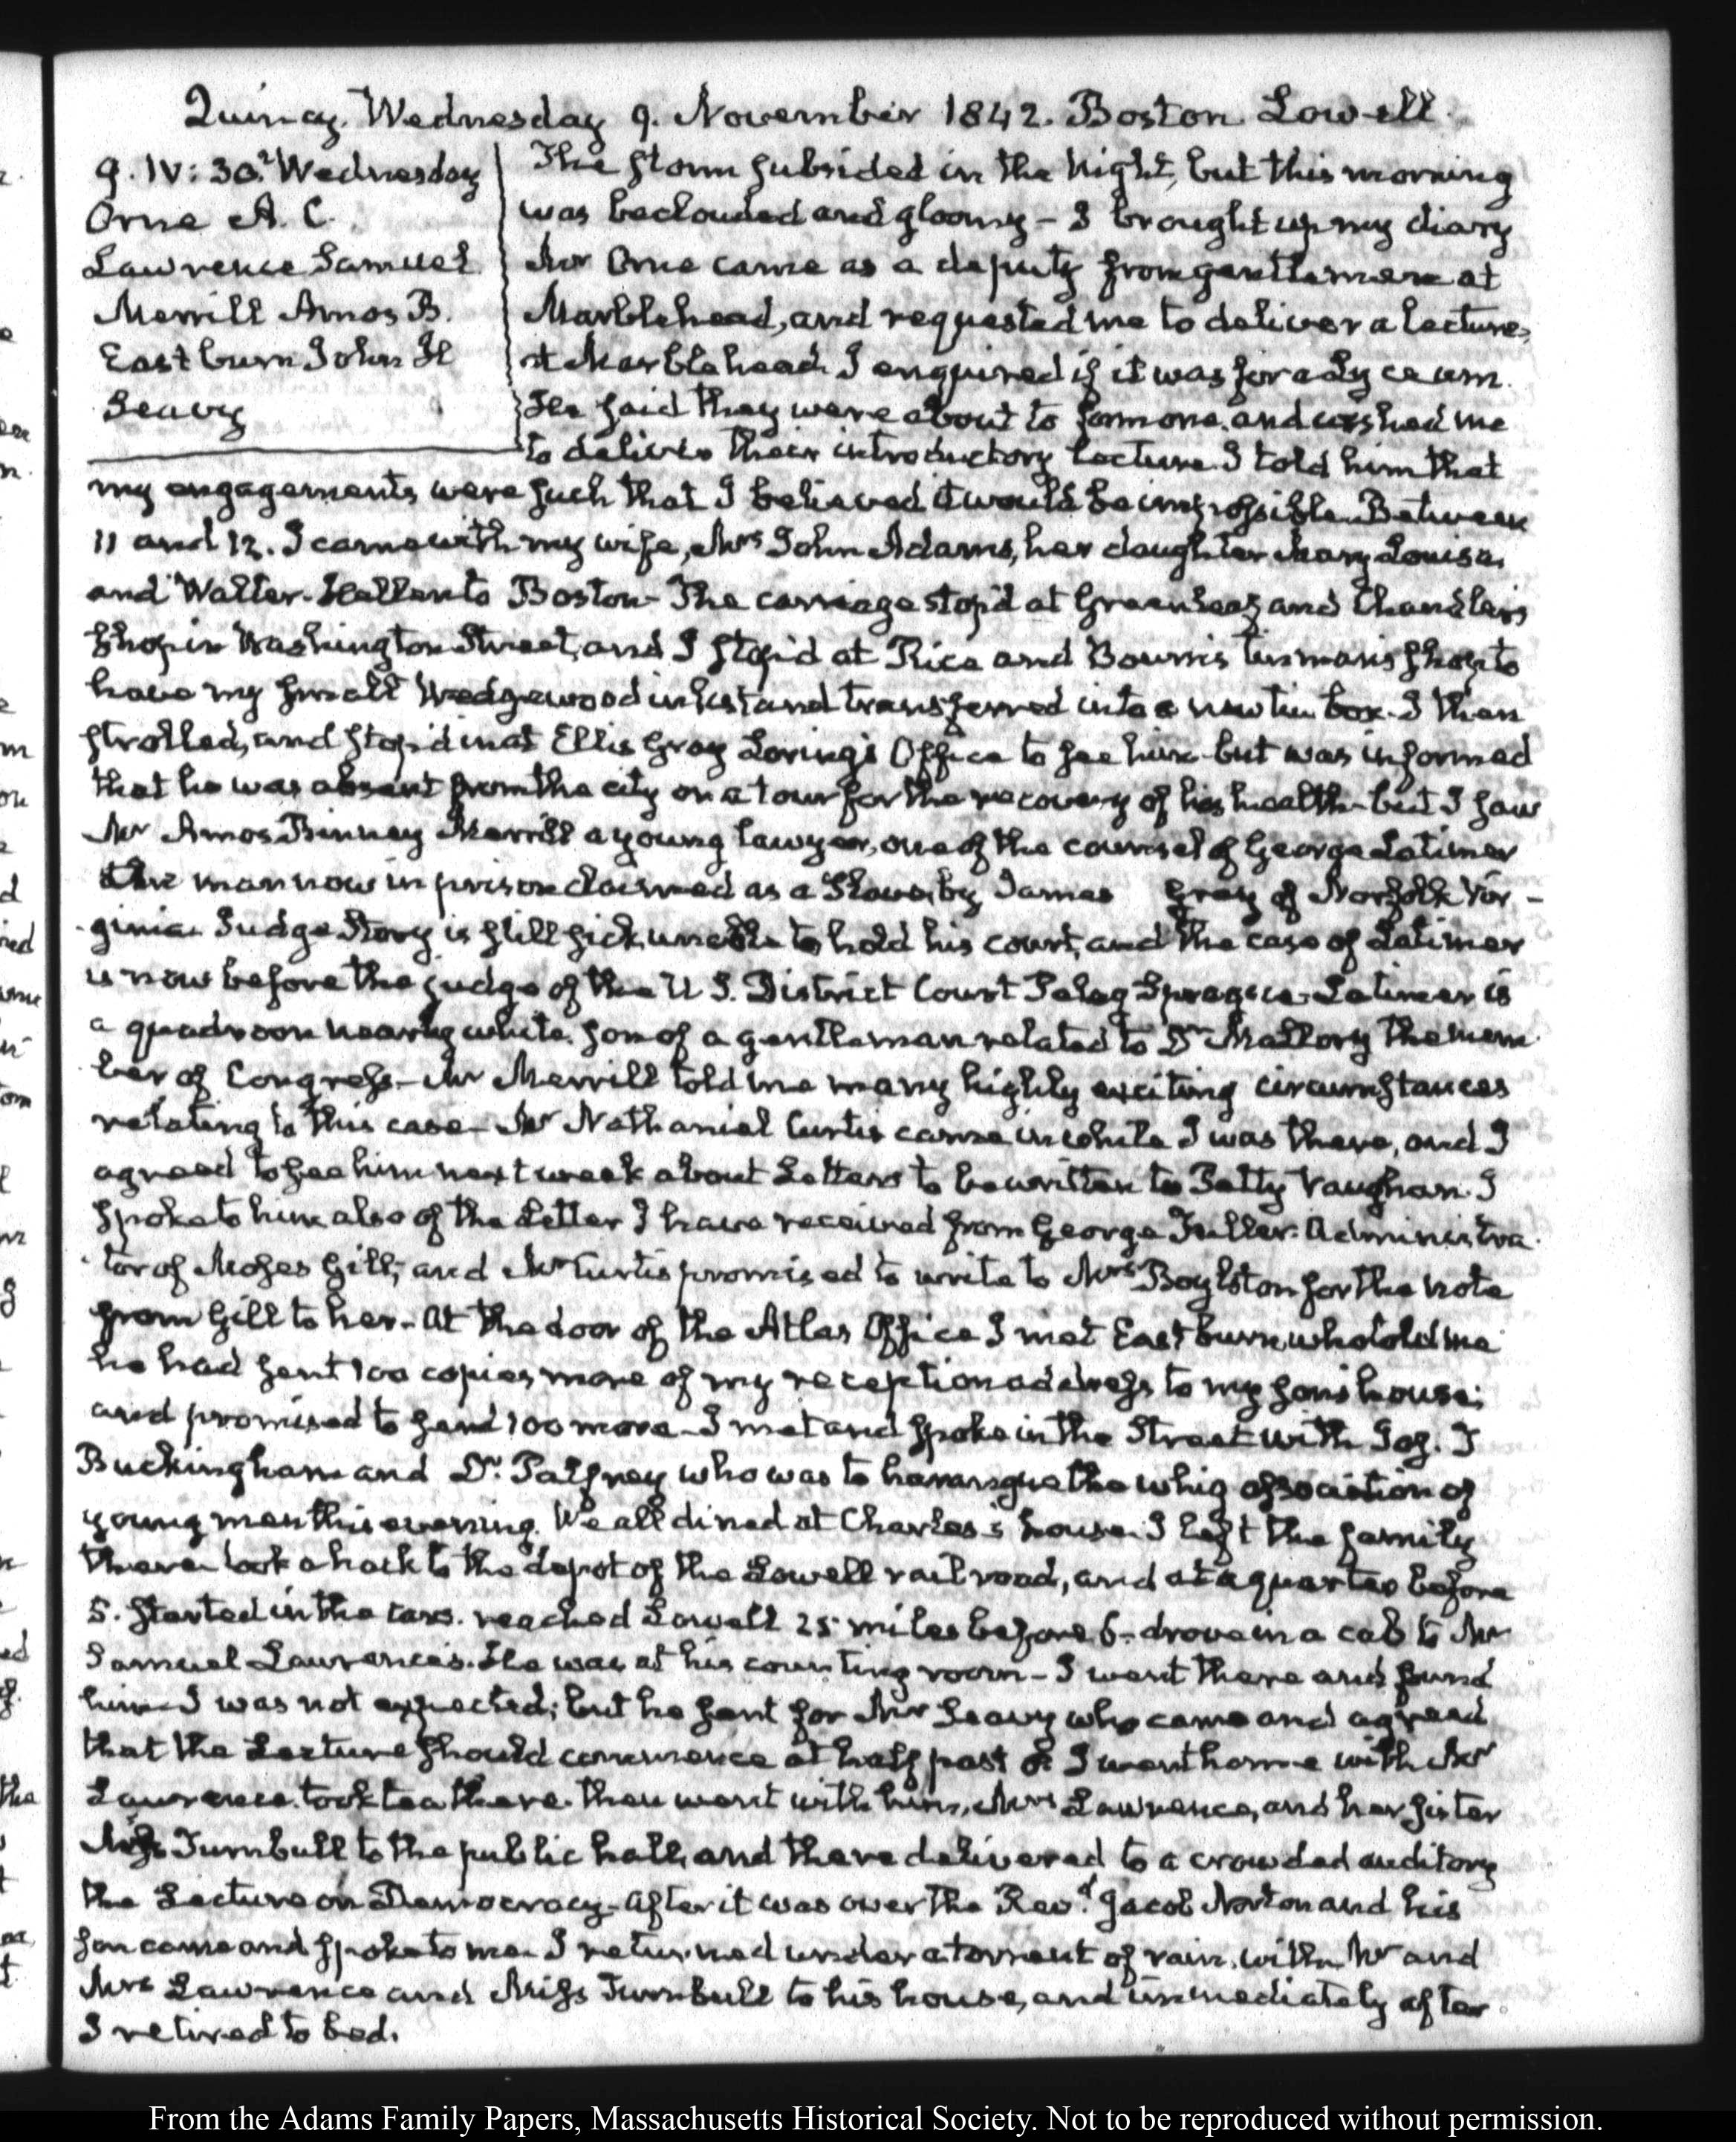 Quincy. Wednesday 9. November 1842. Boston. Lowell.
9. IV: 30. Wednesday
Orne A. C.
Lawrence Samuel
Merrill Amos B.
Eastburn John H
Seavy
The storm subsided in the Night, but this morning
was beclouded and gloomy – I brought up my diary
Mr Orne came as a deputy from gentlemen at
Marblehead, and requested me to deliver a lecture,
at Marblehead. I enquired if it was for a Lyceum.
He said they were about to form one, and wished me
to deliver their introductory lecture. I told him that
my engagements were such that I believed it would be impossible. Between
11 and 12. I came with my wife, Mrs John Adams, her daughter Mary Louisa,
and Walter Hellen to Boston – The carriage stop'd at Greenleaf and Chandler's
shop in Washington Street, and I stop'd at Rice and Bourn's tinman's shop to
have my small Wedgewood inkstand transferred into a new tin box. I then
strolled, and stop'd in at Ellis Gray Loring's Office to see him but was informed
that he was absent from the city on a tour for the recovery of his health – but I saw
Mr Amos Binney Merrill a young lawyer, one of the counsel of George Latimer
the man now in prison claimed as a Slave, by James Gray of Norfolk Vir-
ginia. Judge Story is still sick, unable to hold his court, and the case of Latimer
is now before the judge of the U S. District Court Peleg Sprague – Latimer is
a quadroon nearly white, son of a gentleman related to Dr Mallory the mem-
ber of Congress – Mr Merrill told me many highly exciting circumstances
relating to this case – Mr Nathaniel Curtis came in while I was there, and I
agreed to see him next week about Letters to be written to Petty Vaughan. I
spoke to him also of the Letter I have received from George Fuller. Administra-
tor of Moses Gill; and Mr Curtis promised to write to Mrs Boylston for the note
from Gill to her – At the door of the Atlas Office I met Eastburn, who told me
he had sent 100 copies more of my reception address to my son's house;
and promised to send 100 more – I met and spoke in the Street with Jos. T
Buckingham and Dr. Palfrey who was to harangue the whig association of
young men this evening. We all dined at Charles's house. I left the family
there – took a hack to the depot of the Lowell railroad, and at a quarter before
5. started in the cars. reached Lowell 25 miles before 6 – drove in a cab to Mr
Samuel Lawrence's. He was at his counting room – I went there and found
him – I was not expected; but he sent for Mr Seavy who came and agreed
that the Lecture should commence at half past I went home with Mr
Lawrence. took tea there. then went with him, Mrs Lawrence, and her sister
Miss Turnbull to the public hall, and there delivered to a crowded auditory
the Lecture on Democracy – After it was over the Revd. Jacob Norton and his
son came and spoke to me. I returned under a torrent of rain. with Mr and
Mrs Lawrence and Miss Turnbull to his house, and immediately after
I retired to bed.
From the Adams Family Papers, Massachusetts Historical Society. Not to be reproduced without permission.